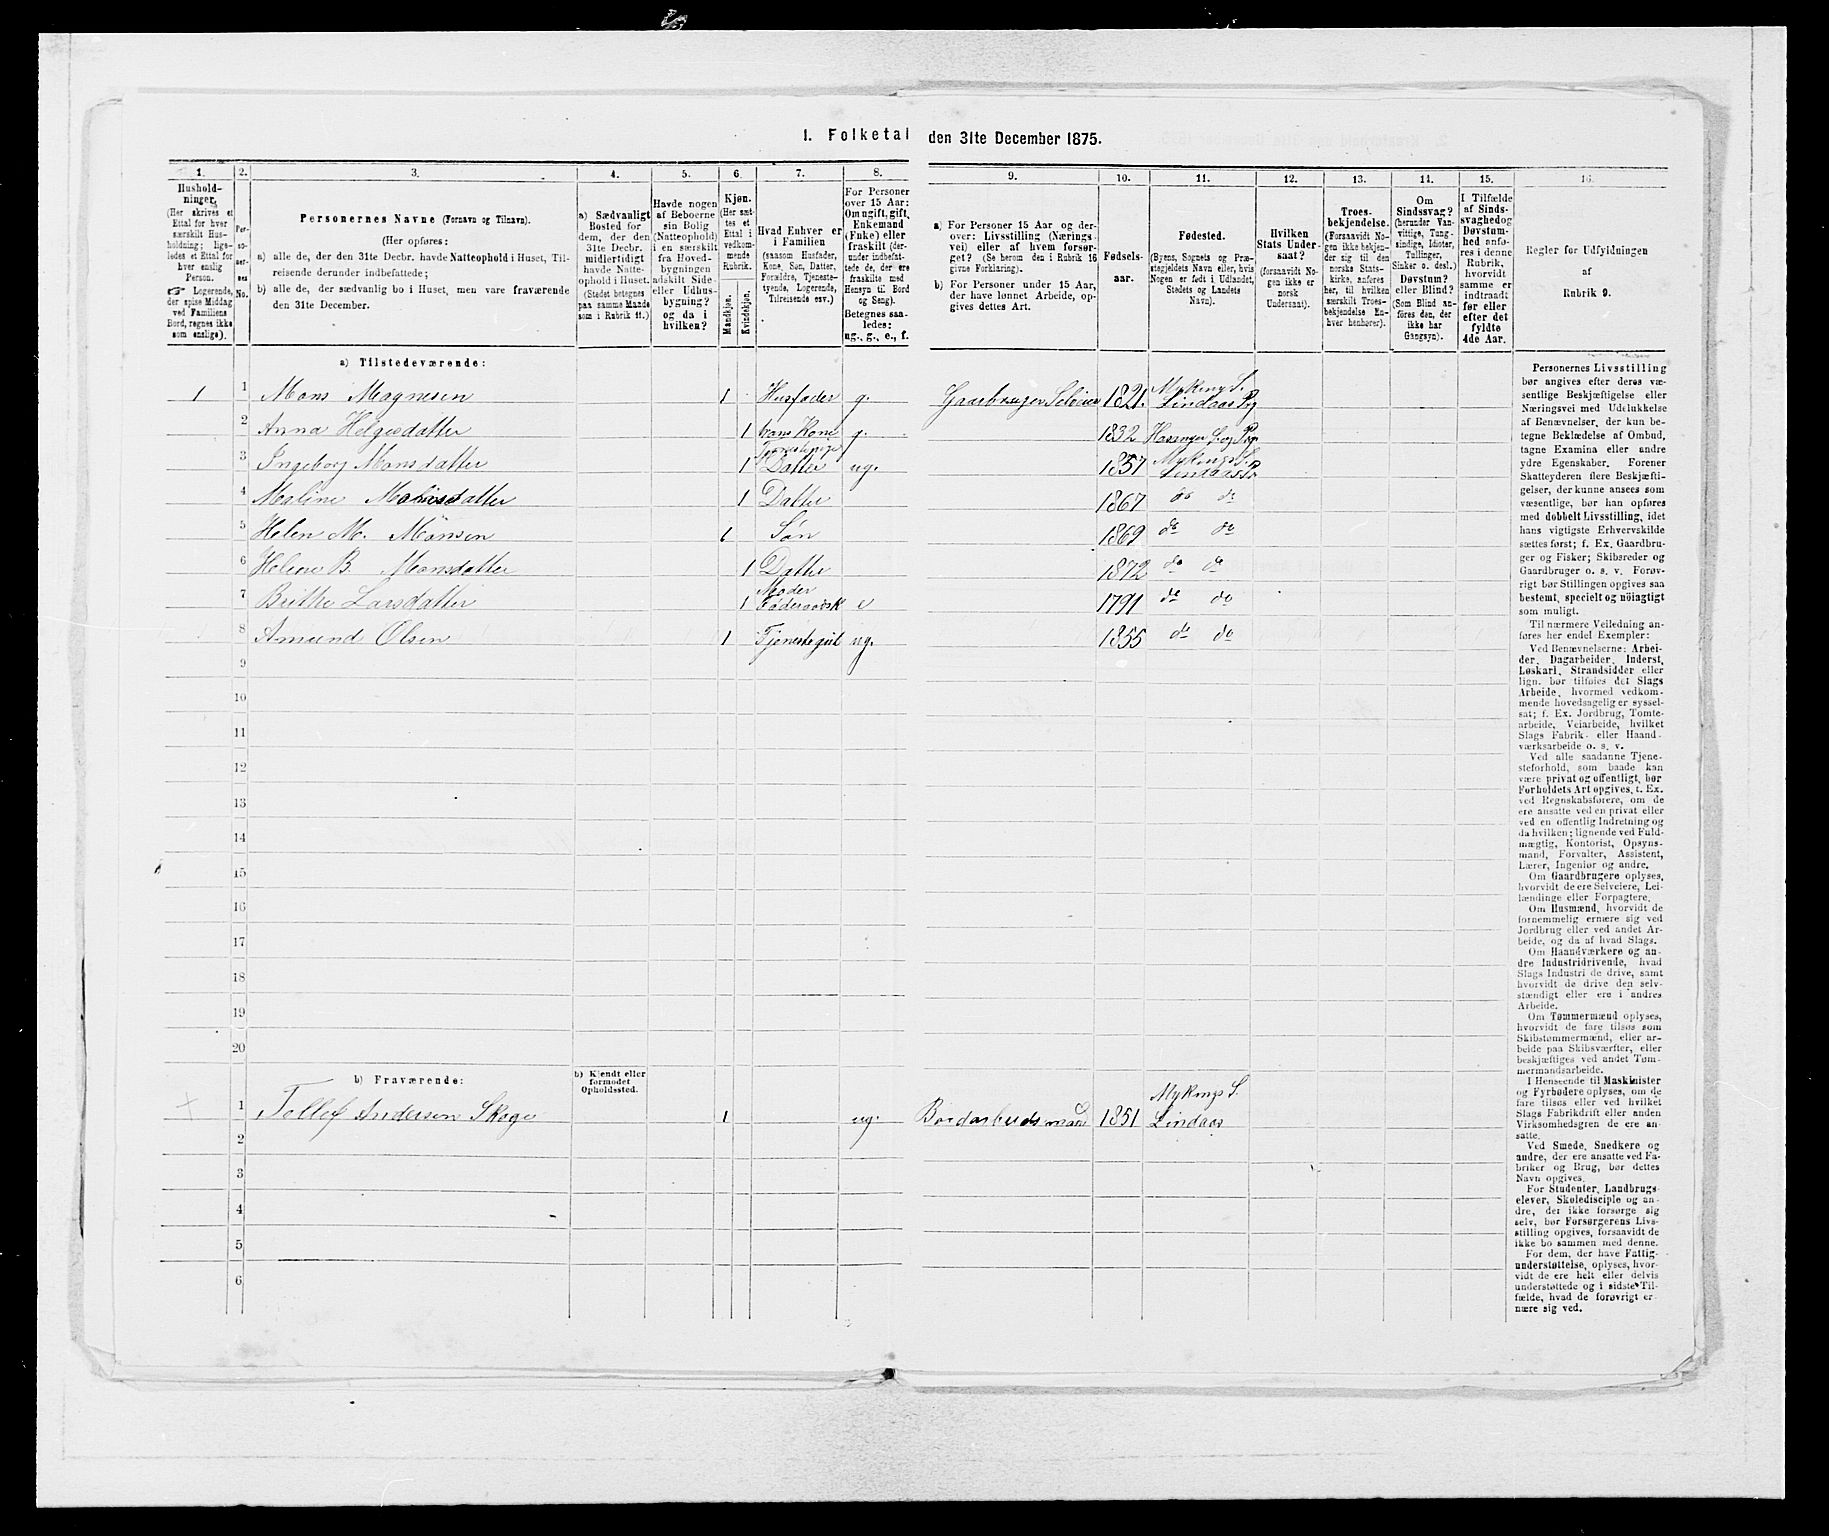 1. Folketal den 31te December 1875.
1.
2.
3.
4.
5.
6.
7.
8.
9.
10.
11.
12.
13.
14.
15.
16.
Hushold-
ninger.
(Her skrives et
Ettal for hver
særskilt Hus-
holdning; lige-
ledes et Ettal for
hver enslig
Person.
☞ Logerende,
der spise Middag
ved Familiens
Bord, regnes ikke
som enslige).
Per-
so-
ner-
nes
No.
Personernes Navne (Fornavn og Tilnavn).
(Her opføres:
a) alle de, der den 31te Decbr. havde Natteophold i Huset, Til-
reisende derunder indbefattede;
b) alle de, der sædvanlig bo i Huset, men vare fraværende
den 31te December.
a) Sædvanligt
Bosted for
dem, der den
31te Decbr.
midlertidigt
havde Natte-
ophold i Huset.
(Stedet betegnes
paa samme Maade
som i Rubrik 11.)
Havde nogen
af Beboerne
sin Bolig
(Natteophold)
i en særskilt
fra Hoved-
bygningen
adskilt Side-
eller Udhus-
bygning?
og da i
hvilken?
Kjøn.
(Her sæt-
tes et
Ettal i
vedkom-
mende
Rubrik.
Mandkjøn.
Kvindekjøn.
Hvad Enhver er
i Familien
(saasom Husfader,
Kone, Søn, Datter,
Forældre, Tjeneste-
tyende, Logerende,
Tilreisende osv.)
For Personer
over 15 Aar:
Om ugift, gift,
Enkemand
(Enke) eller
fraskilt (der-
under indbefat-
tede de, der ere
fraskilte med
Hensyn til Bord
og Seng).
Betegnes saa-
ledes:
ug., g., e., f.
a) For Personer 15 Aar og der-
over: Livsstilling (Nærings-
vei) eller af hvem forsør-
get? (Se herom den i Rubrik 16
givne Forklaring).
b) For Personer under 15 Aar,
der have lønnet Arbeide, op-
gives dettes Art.
Fødsels-
aar.
Fødested.
(Byens, Sognets og Præ-
stegjeldets Navn eller, hvis
Nogen er født i Udlandet,
Stedets og Landets
Navn).
Hvilken
Stats Under-
saat?
(forsaavidt No-
gen ikke er
norsk
Undersaat).
Troes-
bekjendelse.
(Forsaavidt No-
gen ikke bekjen-
der sig til den
norske Stats-
kirke, anføres
her, til hvilken
særskilt Troes-
bekjendelse En-
hver henhører).
Om
Sindssvag?
(herunder Van-
vittige, Tung-
sindige, Idioter,
Tullinger,
Sinker o. desl.)
Døvstum?
eller Blind?
(Som Blind an-
føres den, der
ikke har
Gangsyn).
I Tilfælde
af Sinds-
svaghed og
Døvstum-
hed anfø-
res i denne
Rubrik,
hvorvidt
samme er
indtraadt
før eller
efter det
fyldte
4de Aar.
Regler for Udfyldningen
af
Rubrik 9.
a) Tilstedeværende:
1 1 Mons Magnesen 1 Husfader g. Gaardbruger Selveier 1821. Mykings S. Lindaas Pg
2 Anna Helgesdatter 1 hans Kone g. 1832 Hosanger S. og Pg.
3 Ingeborg Monsdatter 1 Tjenestepige Datter ug. 1857 Mykings S. Lindaas Pg
4 Maline Monsdatter 1 Datter 1867 do do
5 Helen M. Monsen 1 Søn 1869 do do
6 Helene B. Monsdatter 1 Datter 1872 do do
7 Brithe Larsdatter 1 Moder Føderaadsk e 1791 do do
8 Amund Olsen 1 Tjenestegut ug. 1855 do do
9
10
11
12
13
14
15
16
17
18
19
20
b) Fraværende:
b) Kjendt eller
formodet
Opholdssted.
1 Tollef Andersen Skoge 1 ug. Bordarbeidsmand 1851 Mykings S. Lindaas
2
3
4
5
6
Personernes Livsstilling
bør angives efter deres væ-
sentlige Beskjæftigelse eller
Næringsvei med Udelukkelse
af Benævnelser, der kun be-
tegne Beklædelse af Ombud,
tagne Examina eller andre
ydre Egenskaber. Forener
Skatteyderen flere Beskjæfti-
gelser, der kunne ansees som
væsentlige, bør han opføres
med dobbelt Livsstilling, idet
hans vigtigste Erhvervskilde
sættes først; f. Ex. Gaardbru-
ger og Fisker; Skibsreder og
Gaardbruger o. s. v. Forøv-
rigt bør Stillingen opgives saa
bestemt, specielt og nøiagtigt
som muligt.
Til nærmere Veiledning an-
føres her endel Exempler:
Ved Benævnelserne: Arbei-
der, Dagarbeider, Inderst,
Løskarl, Strandsidder eller
lign. bør tilføies det Slags
Arbeide, hvormed vedkom-
mende hovedsagelig er syssel-
sat; f. Ex. Jordbrug, Tomte-
arbeide, Veiarbeide, hvilket
Slags Fabrik- eller Haand-
værksarbeide o. s. v.
Ved alle saadanne Tjene-
steforhold, som baade kan
være privat og offentligt, bør
Forholdets Art opgives, t. Ex.
ved Regnskabsførere, om de
ere ansatte ved en privat eller
ved en offentlig Indretning og
da hvilken; lignende ved Fuld-
mægtig, Kontorist, Opsyns-
mand, Forvalter, Assistent,
Lærer, Ingeniør og andre.
Om Gaardbrugere oplyses,
hvorvidt de ere Selveiere, Lei-
lændinge eller Forpagtere.
Om Husmænd, hvorvidt de
fornemmelig ernære sig ved
Jordbrug eller ved andet Ar-
beide, og da af hvad Slags.
Om Haandværkere og an-
dre Industridrivende, hvad
Slags Industri de drive, samt
hvorvidt de drive den selv-
stændigt eller ere i andres
Arbeide.
Om Tømmermænd oplyses,
hvorvidt de fare tilsøs som
Skibstømmermænd, eller ar-
beide paa Skibsværfter, eller
beskjæftiges ved andet Tøm-
mermandsarbeide.
I Henseende til Maskinister
og Fyrbødere oplyses, om de
fare tilsøs eller ved hvilket
Slags Fabrikdrift eller anden
Virksomhedsgren de ere an-
satte.
Ved Smede, Snedkere og
andre, der ere ansatte ved Fa-
briker og Brug, bør dettes
Navn opgives.
For Studenter, Landbrugs-
elever, Skoledisciple og an-
dre, der ikke forsørge sig
selv, bør Forsørgerens Livs-
stilling opgives, forsaavidt de
ikke bo sammen med denne.
For dem, der have Fattig-
understøttelse, oplyses, hvor-
vidt de ere helt eller delvis
understøttede og i sidste Til-
fælde, hvad de forøvrigt er-
nære sig ved.